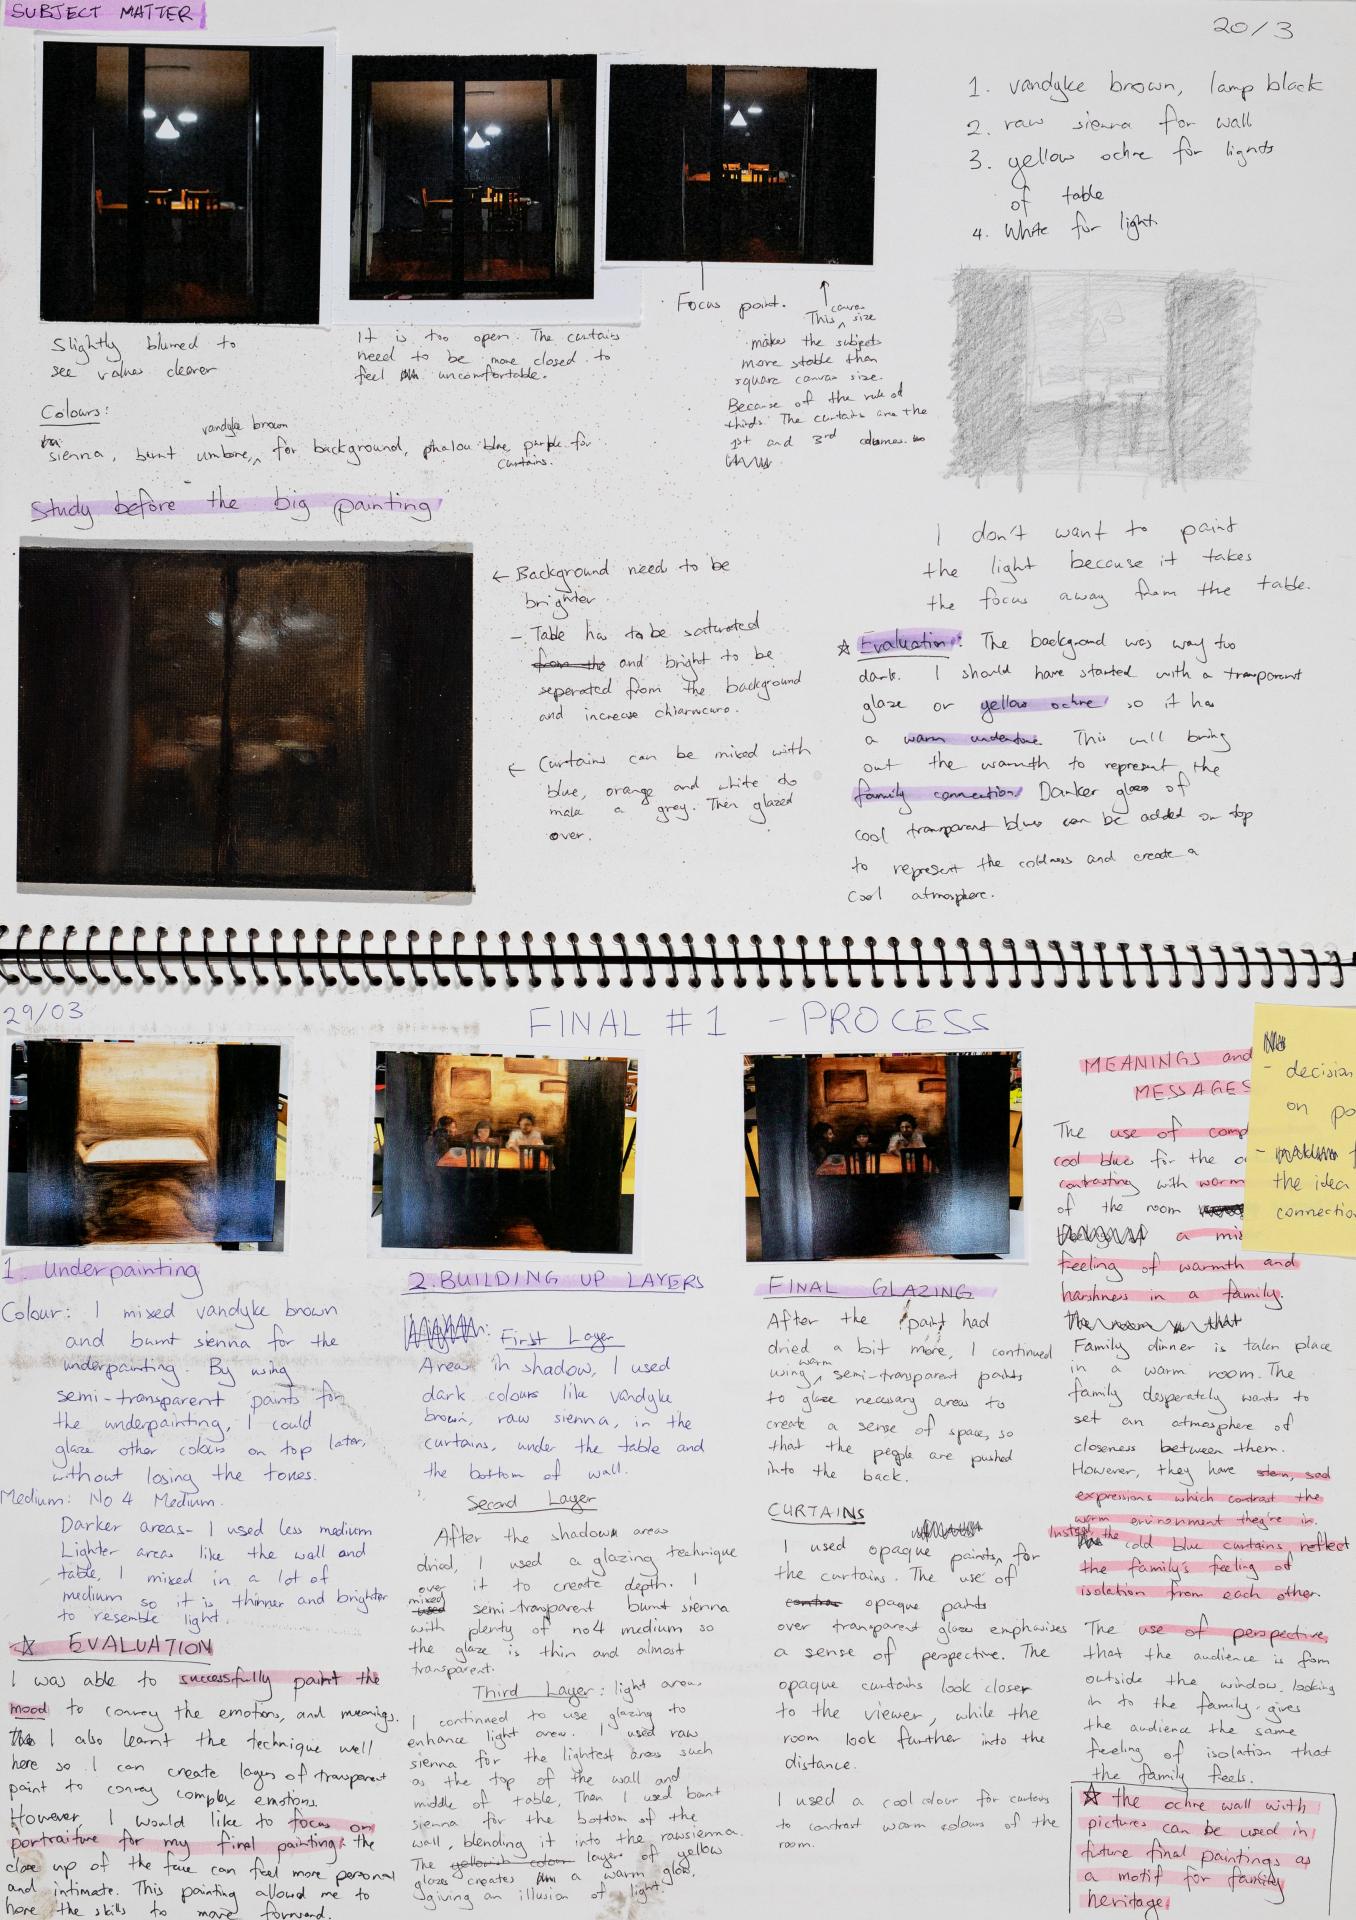 SUBJECT MATTER
20/3
Slightly blurred to
see values clearer
It is too open. The curtains
need to be more closed to
feel uncomfortable.
Focus point.
This canvas size
makes the subjects
more stable than
square canvas size.
Because of the rule of
thirds. The curtains are the
1st and 3rd columns.
1. vandyke brown, lamp black
2. raw sienna for wall
3. yellow ochre for lights
of table
4. White for light.
Colours:
sienna, burnt umbre, vandyke brown for background, phalou blue, purple for
curtains.
Study before the big painting
← Background need to be
brighter
- Table has to be saturated
and bright to be
seperated from the background
and increase chiaruscuro.
← Curtains can be mixed with
blue, orange and white to
make a grey. Then glazed
over.
I don't want to paint
the light because it takes
the focus away from the table.
☆ Evaluation: The background was way too
dark. I should have started with a transparent
glaze or yellow ochre so it has
a warm undertone. This will bring
out the warmth to represent the
family connection. Darker glaze of
cool transparent blues can be added on top
to represent the coldness and create a
cool atmosphere.
29/03
FINAL #1 - PROCESS
1. Underpainting
Colour: I mixed vandyke brown
and burnt sienna for the
underpainting. By using
semi-transparent paints for
the underpainting, I could
glaze other colours on top later,
without losing the tones.
Medium: No 4 Medium.
Darker areas- I used less medium
Lighter areas like the wall and
table, I mixed in a lot of
medium so it is thinner and brighter
to resemble light.
☆ EVALUATION
I was able to successfully paint the
mood to convey the emotions, and meanings.
I also learnt the technique well
here so I can create layers of transparent
paint to convey complex emotions.
However, I would like to focus on
portraiture for my final painting: the
close up of the face can feel more personal
and intimate. This painting allowed me to
hone the skills to move forward.
2. BUILDING UP LAYERS
First Layer
Areas in shadow, I used
dark colours like vandyke
brown, raw sienna, in the
curtains, under the table and
the bottom of wall.
Second Layer
After the shadow areas
dried, I used a glazing technique
over it to create depth. I
mixed semi-transparent burnt sienna
with plenty of no4 medium so
the glaze is thin and almost
transparent.
Third Layer: light areas
I continued to use glazing to
enhance light area. I used raw
sienna for the lightest areas such
as the top of the wall and
middle of table. Then I used burnt
sienna for the bottom of the
wall, blending it into the rawsienna.
The layers of yellow
glazes creates a warm glow,
giving an illusion of light.
FINAL GLAZING
After the paint had
dried a bit more, I continued
using warm semi-transparent paints
to glaze necessary areas to
create a sense of space, so
that the people are pushed
into the back.
CURTAINS
I used opaque paints, for
the curtains. The use of
opaque paints
over transparent glaze emphasises
a sense of perspective. The
opaque curtains look closer
to the viewer, while the
room look further into the
distance.
I used a cool colour for curtains
to contrast warm colours of the
room.
MEANINGS and
MESSAGES
The use of comp
cool blue for the
contrasting with warm
of the room
a mix
feeling of warmth and
harshness in a family.
Family dinner is taken place
in a warm room. The
family desperately wants to
set an atmosphere of
closeness between them.
However, they have stern, sad
expressions which contrast the
warm environment they're in.
Instead the cold blue curtains reflect
the family's feeling of
isolation from each other.
The use of perspective,
that the audience is from
outside the window, looking
in to the family, gives
the audience the same
feeling of isolation that
the family feels.
☆ the ochre wall with
pictures can be used in
future final paintings as
a motif for family
heritage.
- decision
on po
-
the idea
connectio